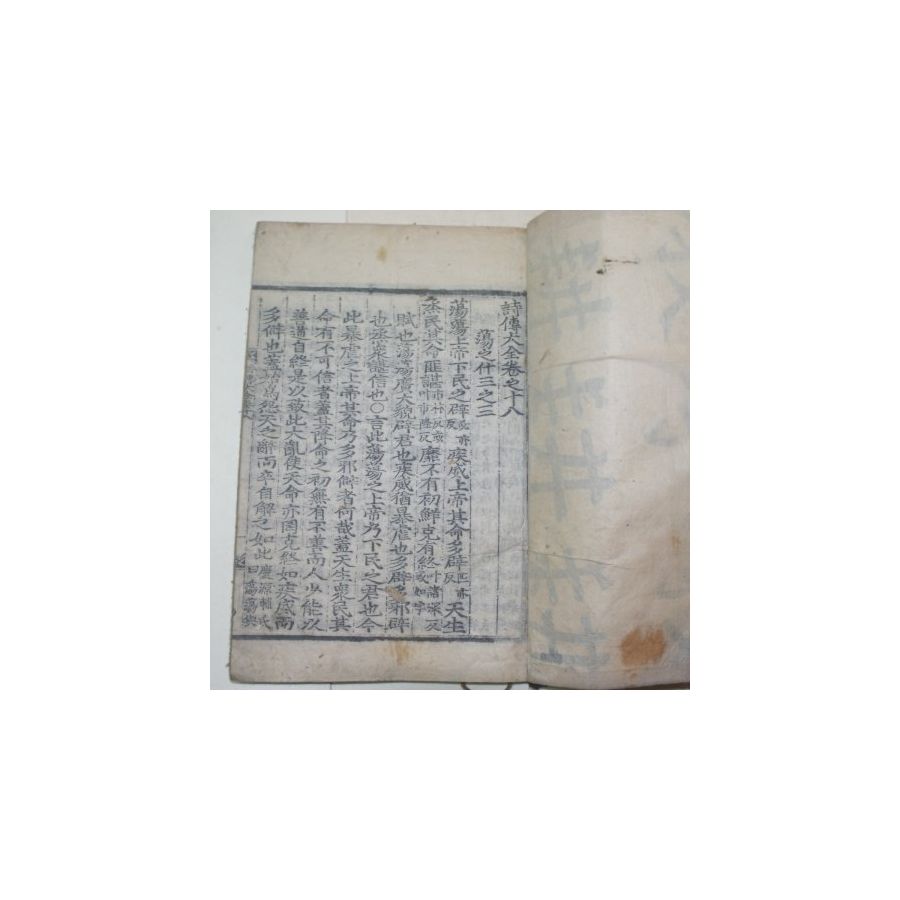 詩傳大全卷之十八
蕩之什三之三
蕩蕩上帝下民之辟必亦反疾威上帝其命多辟匹亦反天生
烝民其命匪諶市林反或叶市隆反靡不有初鮮克有終叶諸深反或如字
賦也蕩蕩廣大貌辟君也疾威猶暴虐也多辟多邪辟
也烝衆諶信也○言此蕩蕩之上帝乃下民之君也今
此暴虐之上帝其命乃多邪僻者何哉蓋天生衆民其
命有不可信者蓋其降命之初無有不善而人少能以
善道自終是以致此大亂使天命亦罔克終如疾威而
多僻也蓋始爲怨天之辭而卒自解之如此慶源輔氏曰蕩蕩